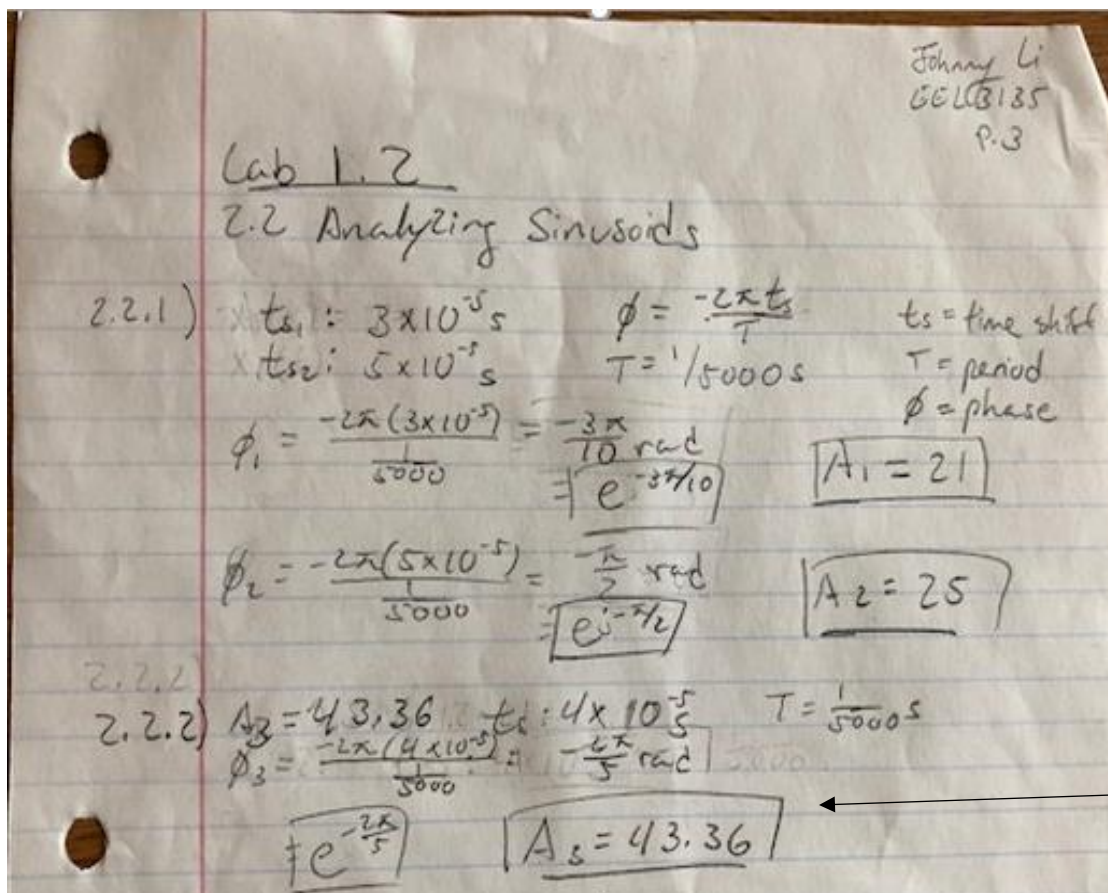 Johnny Li
EEL3135
P.3
Lab 1.2
2.2 Analyzing Sinusoids
2.2.1) ts₁: 3×10⁻⁵ s φ = -2πts/T ts = time shift
ts₂: 5×10⁻⁵ s T = 1/5000 s T = period
φ = phase
φ₁ = -2π(3×10⁻⁵)/(1/5000) = -3π/10 rad
= e^(-3π/10) A₁ = 21
φ₂ = -2π(5×10⁻⁵)/(1/5000) = -π/2 rad A₂ = 25
= e^(j-π/2)
2.2.2
2.2.2) A₃ = 43.36 ts: 4×10⁻⁵ s T = 1/5000 s
φ₃ = -2π(4×10⁻⁵)/(1/5000) = -2π/5 rad
= e^(-2π/5) A₃ = 43.36